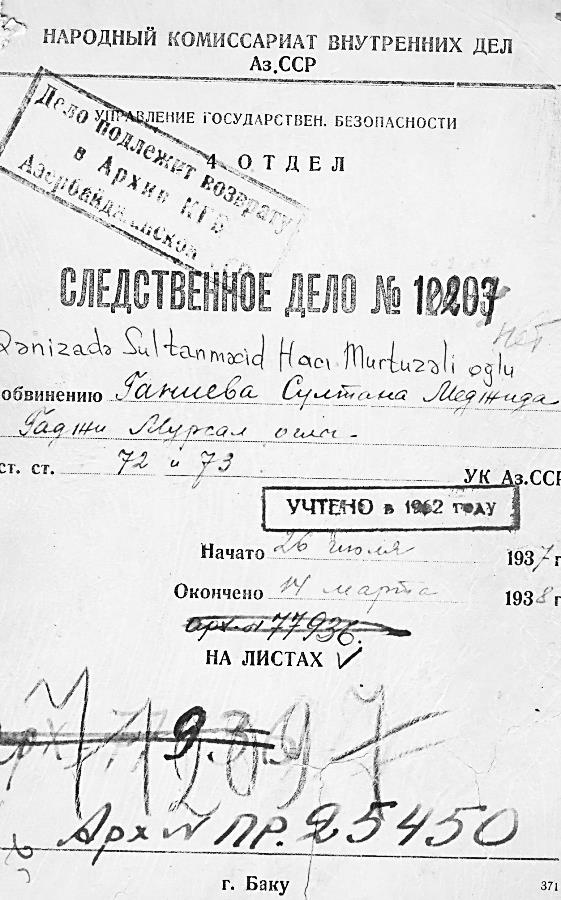 НАРОДНЫЙ КОМИССАРИАТ ВНУТРЕННИХ ДЕЛ
Аз.ССР
УПРАВЛЕНИЕ ГОСУДАРСТВЕН. БЕЗОПАСНОСТИ
4 ОТДЕЛ
Дело подлежит возврату
в Архив КГБ
Азербайджанской
СЛЕДСТВЕННОЕ ДЕЛО №
нет
Qənizadə Sultanməcid Hacı Murtuzəli oğlu
обвинению Ганиева Султана Меджида
Гаджи Мурсал оглы
ст. ст. 72 и 73 УК Аз.ССР
УЧТЕНО в 1962 году
Начато 26 июля 1937 г
Окончено 14 марта 1938 г
арх № 77936.
НА ЛИСТАХ
Арх № ПР. 25450
г. Баку
371